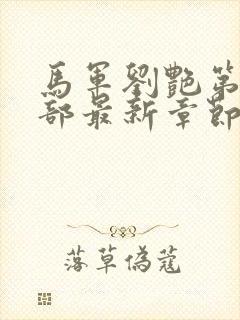 馬軍劉艷第
部最新章節
落草偽蔻